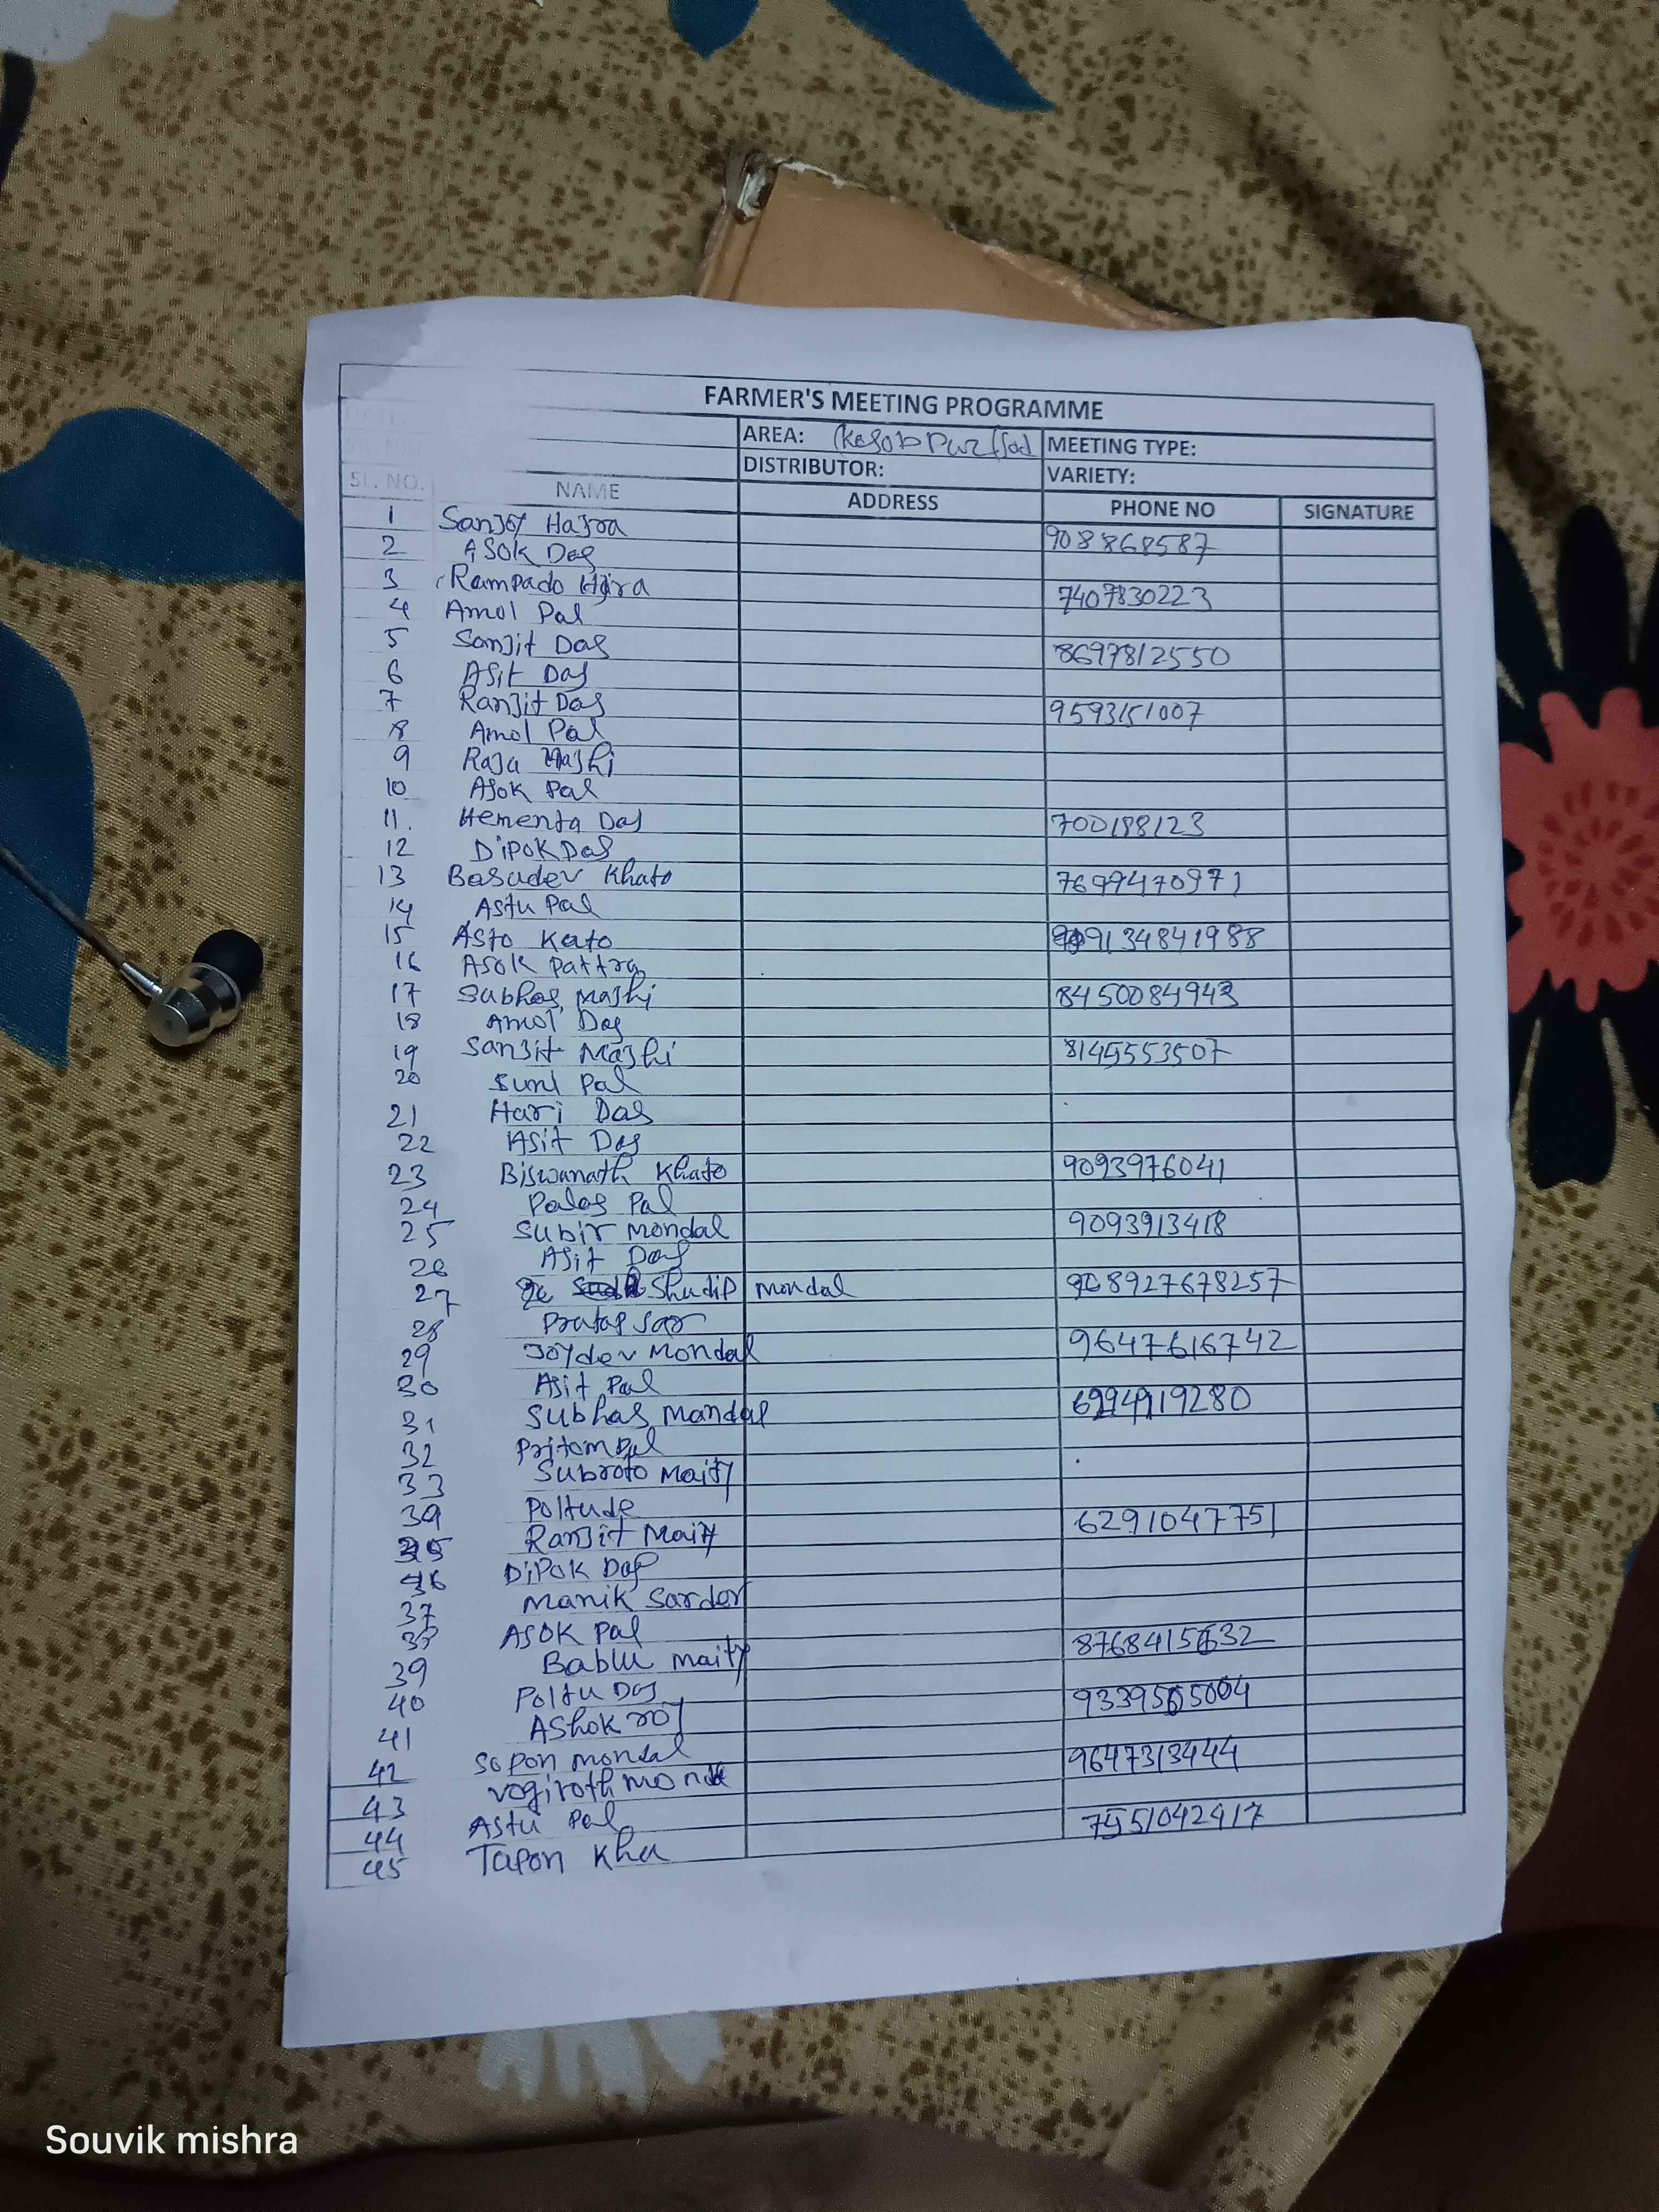 FARMER'S MEETING PROGRAMME
DATE:
AREA: MEETING TYPE:
DISTRIBUTOR: VARIETY:
SL. NO. NAME ADDRESS PHONE NO SIGNATURE
1 Sanjoy Hajra 908868587
2 ASOK Das
3 Rampado Hajra 7407830223
4 Amol Pal
5 Sanjit Das 8697812550
6 Asit Das
7 Ranjit Das 9593151007
8 Amol Pal
9 Raju Majhi
10 Asok Pal
11. Hementa Das 700188123
12 Dipok Das
13 Basudev Khato 7699470971
14 Astu Pal
15 Asto Kato 9134841988
16 Asok Pattra
17 Subhas Majhi 8450084943
18 Amol Das
19 Sanjit Majhi 8145553507
20 Sunl Pal
21 Hari Das
22 Asit Das
23 Biswanath Khato 9093976041
24 Palas Pal
25 Subir Mondal 9093913418
26 Asit Das
27 Shudip Mondal 8927678257
28 Pratap Sar
29 Joydev Mondal 9647616742
30 Asit Pal
31 Subhas Mandal
32 Pritom Pal
33 Subroto Maity
34 Poltude
35 Ranjit Maity 6291047751
36 Dipok Das
37 Manik Sarder
38 ASOK Pal
39 Bablu maity
40 Poltu Das
41 Ashok roy
42 Sopon mondal 9647313444
43 vogiroth
44 Astu Pal
45 Tapon Kha
Souvik mishra